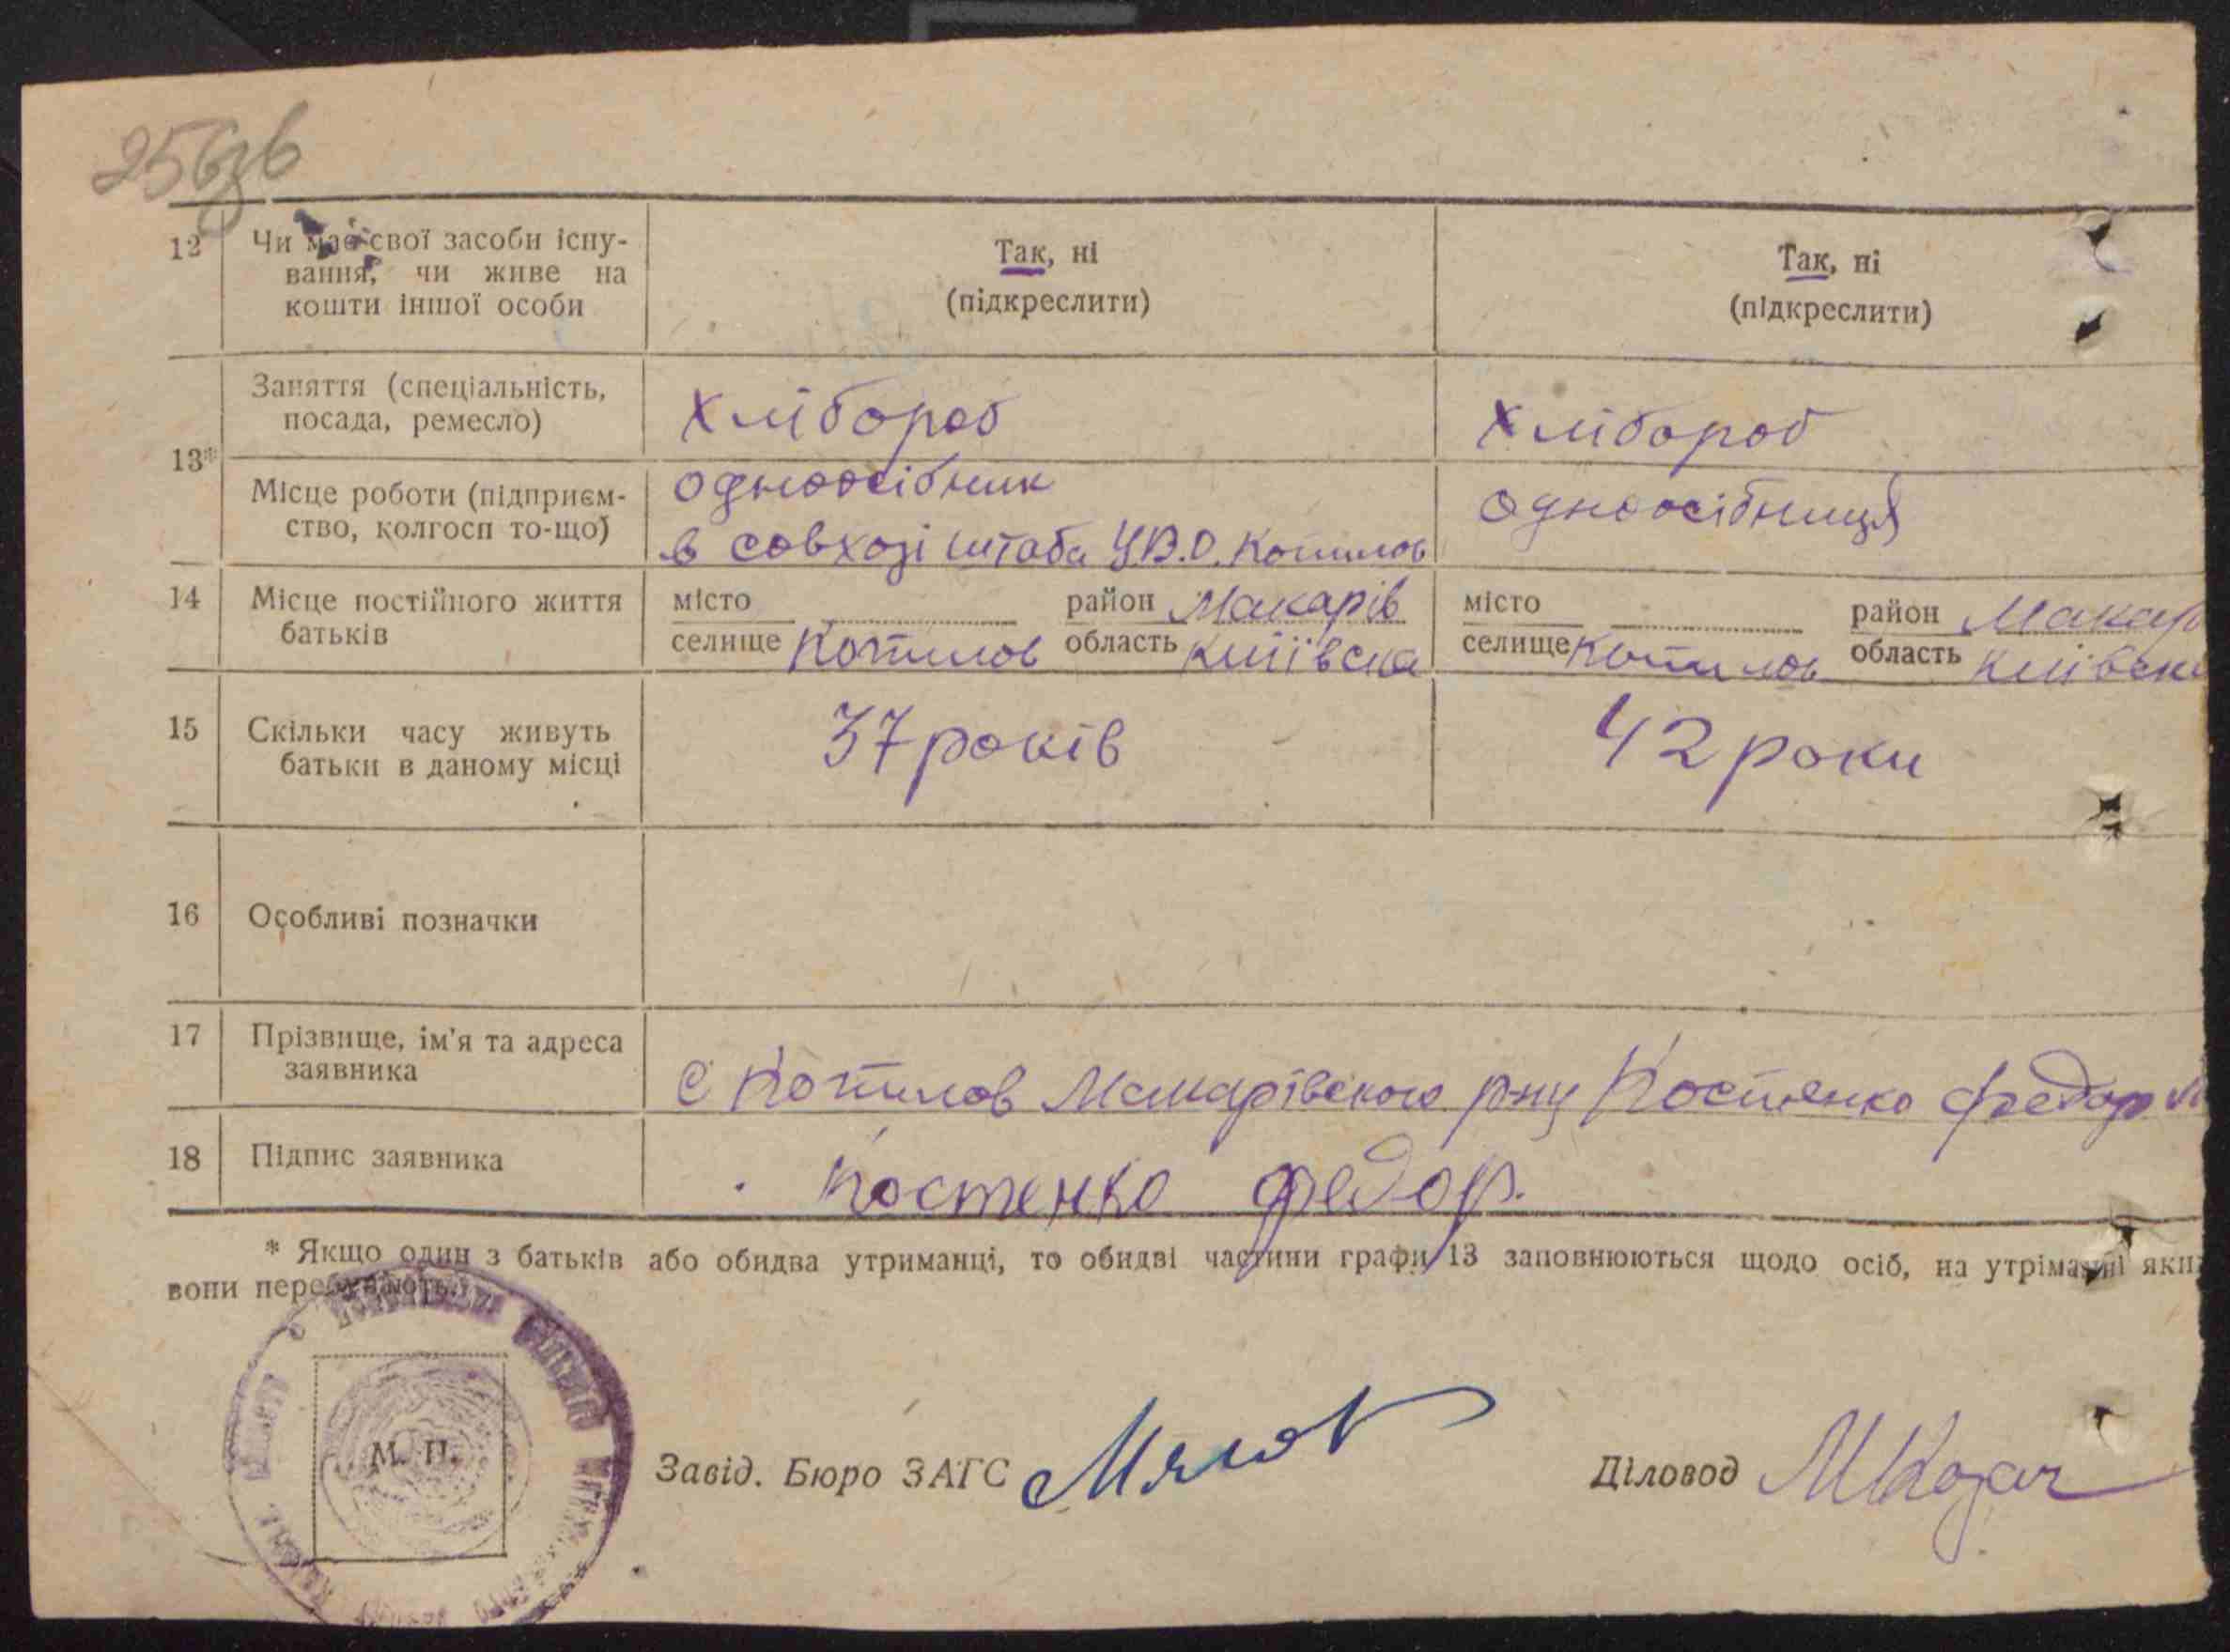 256зв
12 Чи має свої засоби існу-
вання, чи живе на
кошти іншої особи
Так, ні
(підкреслити)
Так, ні
(підкреслити)
13*
Заняття (спеціальність,
посада, ремесло)
Хлібороб
Хлібороб
Місце роботи (підприєм-
ство, колгосп то-що)
одноосібник
в совхозі штаба У.В.О. Копилов
одноосібниця
14 Місце постійного життя
батьків
місто район Макарів
селище Копилов область Київска
місто район Макар
селище Копилов область Київск
15 Скільки часу живуть
батьки в даному місці
37 років
42 роки
16 Особливі позначки
17 Прізвище, ім'я та адреса
заявника
с Копилов Макарівского р-ну Костенко Федор
18 Підпис заявника
Костенко Федор.
* Якщо один з батьків або обидва утриманці, то обидві частини графи 13 заповнюються щодо осіб, на утріманні яки
вони перебувають.
М. П.
Завід. Бюро ЗАГС
Діловод МКозач